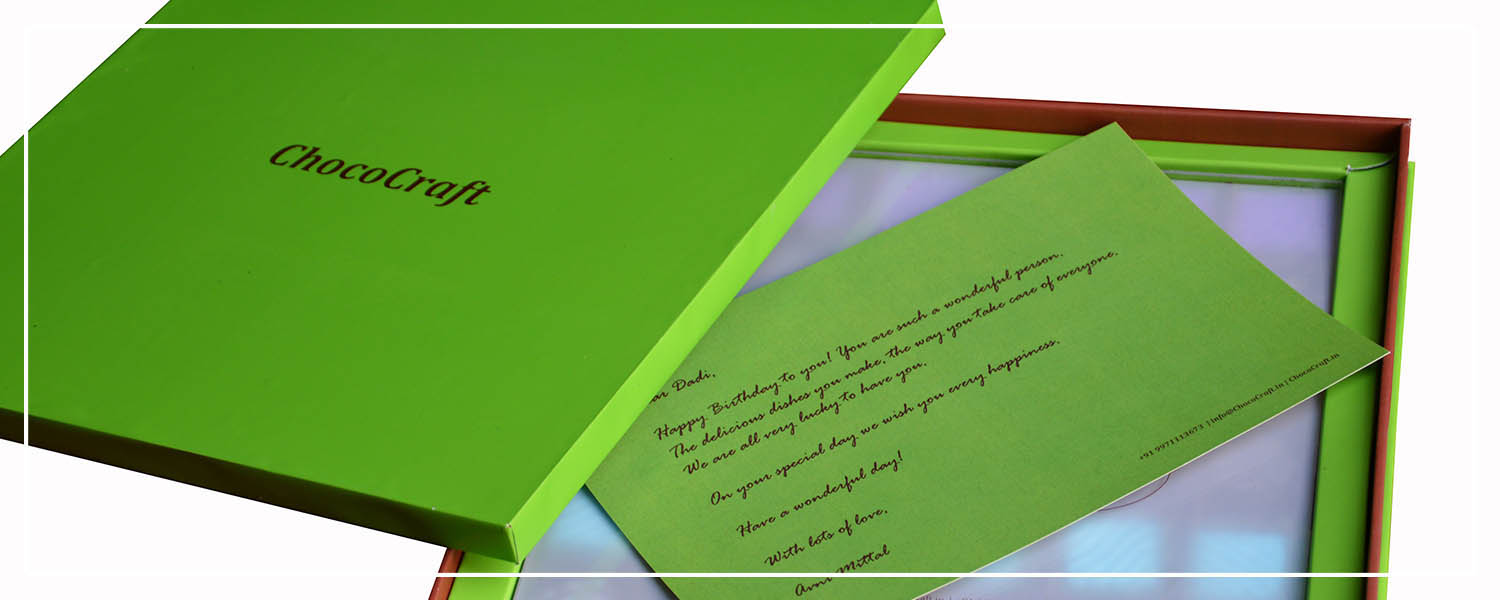 ChocoCraft
ar Dadi,
Happy Birthday to you! You are such a wonderful person.
The delicious dishes you make, the way you take care of everyone.
We are all very lucky to have you.
On your special day we wish you every happiness.
Have a wonderful day!
With lots of love,
Avni Mittal
+91 9971113673 | info@ChocoCraft.in | ChocoCraft.in